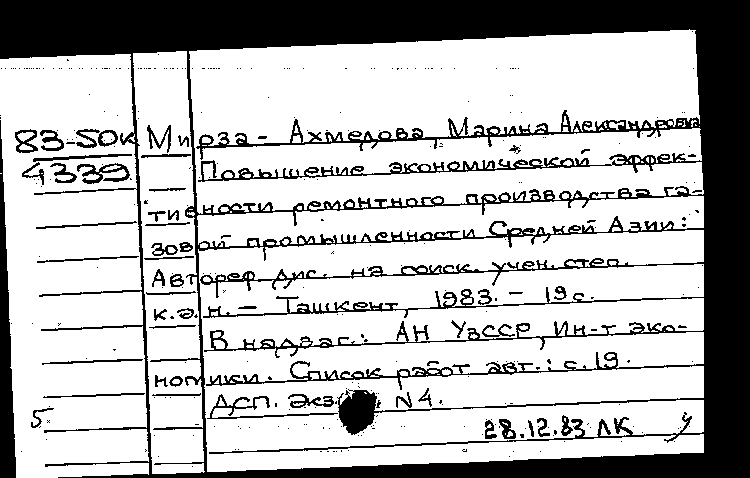 83-50к Мирза-Ахмедова, Марина Александровна
4339 Повышение экономической эффек-
тивности ремонтного производства га-
зовой промышленности Средней Азии:
Автореф. дис. на соиск. учен. степ.
к.э.н. - Ташкент, 1983. - 19 с.
В надзаг.: АН УзССР, Ин-т эко-
номики. Список работ авт.: с. 19.
ДСП. Экз. N 4.
5
28.12.83 ЛК